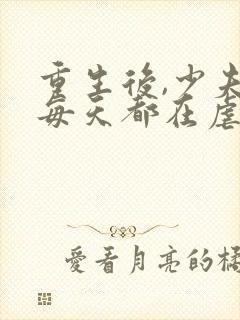 重生後,少夫
每天都在虐
愛看月亮的橘